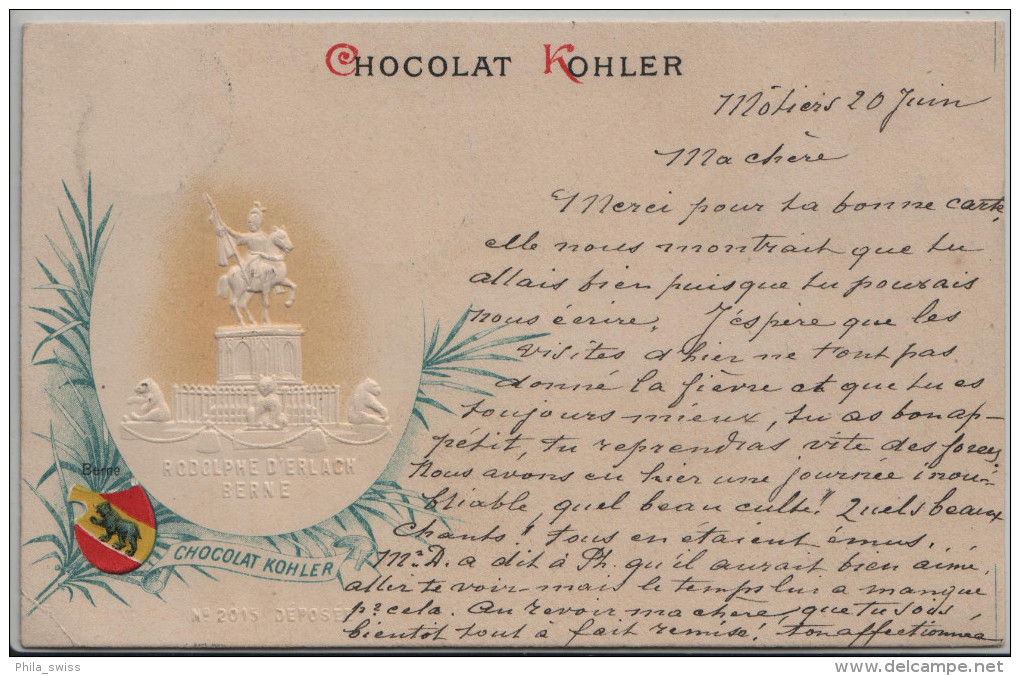 CHOCOLAT KOHLER
Môtiers 20 Juin
Ma chère
Merci pour ta bonne carte,
elle nous montrait que tu
allais bien puisque tu pouvais
nous écrire. J'espère que les
visites d'hier ne t'ont pas
donné la fièvre et que tu es
toujours mieux, tu as bon ap-
pétit, tu reprendras vite des forces.
Nous avons eu hier une journée inou-
bliable, quel beau culte! Quels beaux
chants! tous en étaient émus.
Mr. D. a dit à Ph. qu'il aurait bien aimé
aller te voir mais le temps lui a manqué
pr. cela. Au revoir ma chère, que tu sois
bientôt tout à fait remise! ton affectionnée
RODOLPHE D'ERLACH
BERNE
Berne
CHOCOLAT KOHLER
No 2015 DÉPOSÉ
Phila_swiss
www.delcampe.net